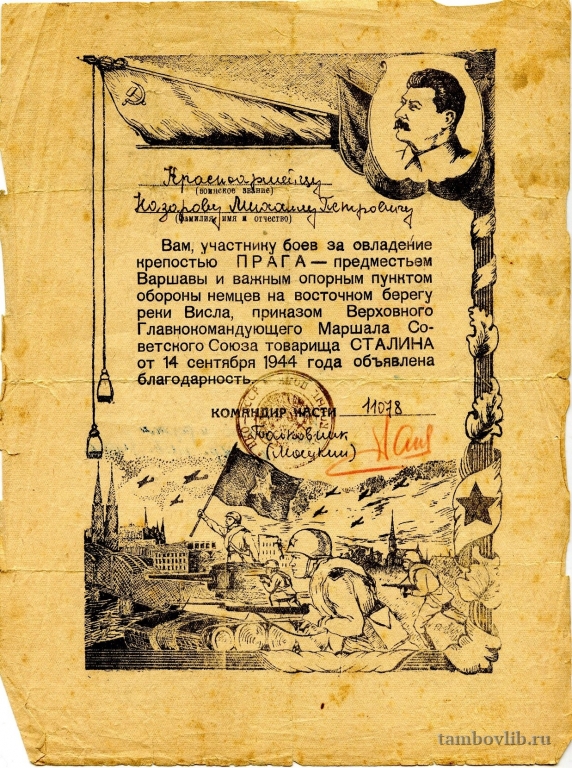 Красноармейцу
(воинское звание)
Назарову Михаилу Петровичу
(фамилия, имя и отчество)
Вам, участнику боев за овладение
крепостью ПРАГА — предместьем
Варшавы и важным опорным пунктом
обороны немцев на восточном берегу
реки Висла, приказом Верховного
Главнокомандующего Маршала Со-
ветского Союза товарища СТАЛИНА
от 14 сентября 1944 года объявлена
благодарность.
КОМАНДИР ЧАСТИ 11078
Полковник
tambovlib.ru